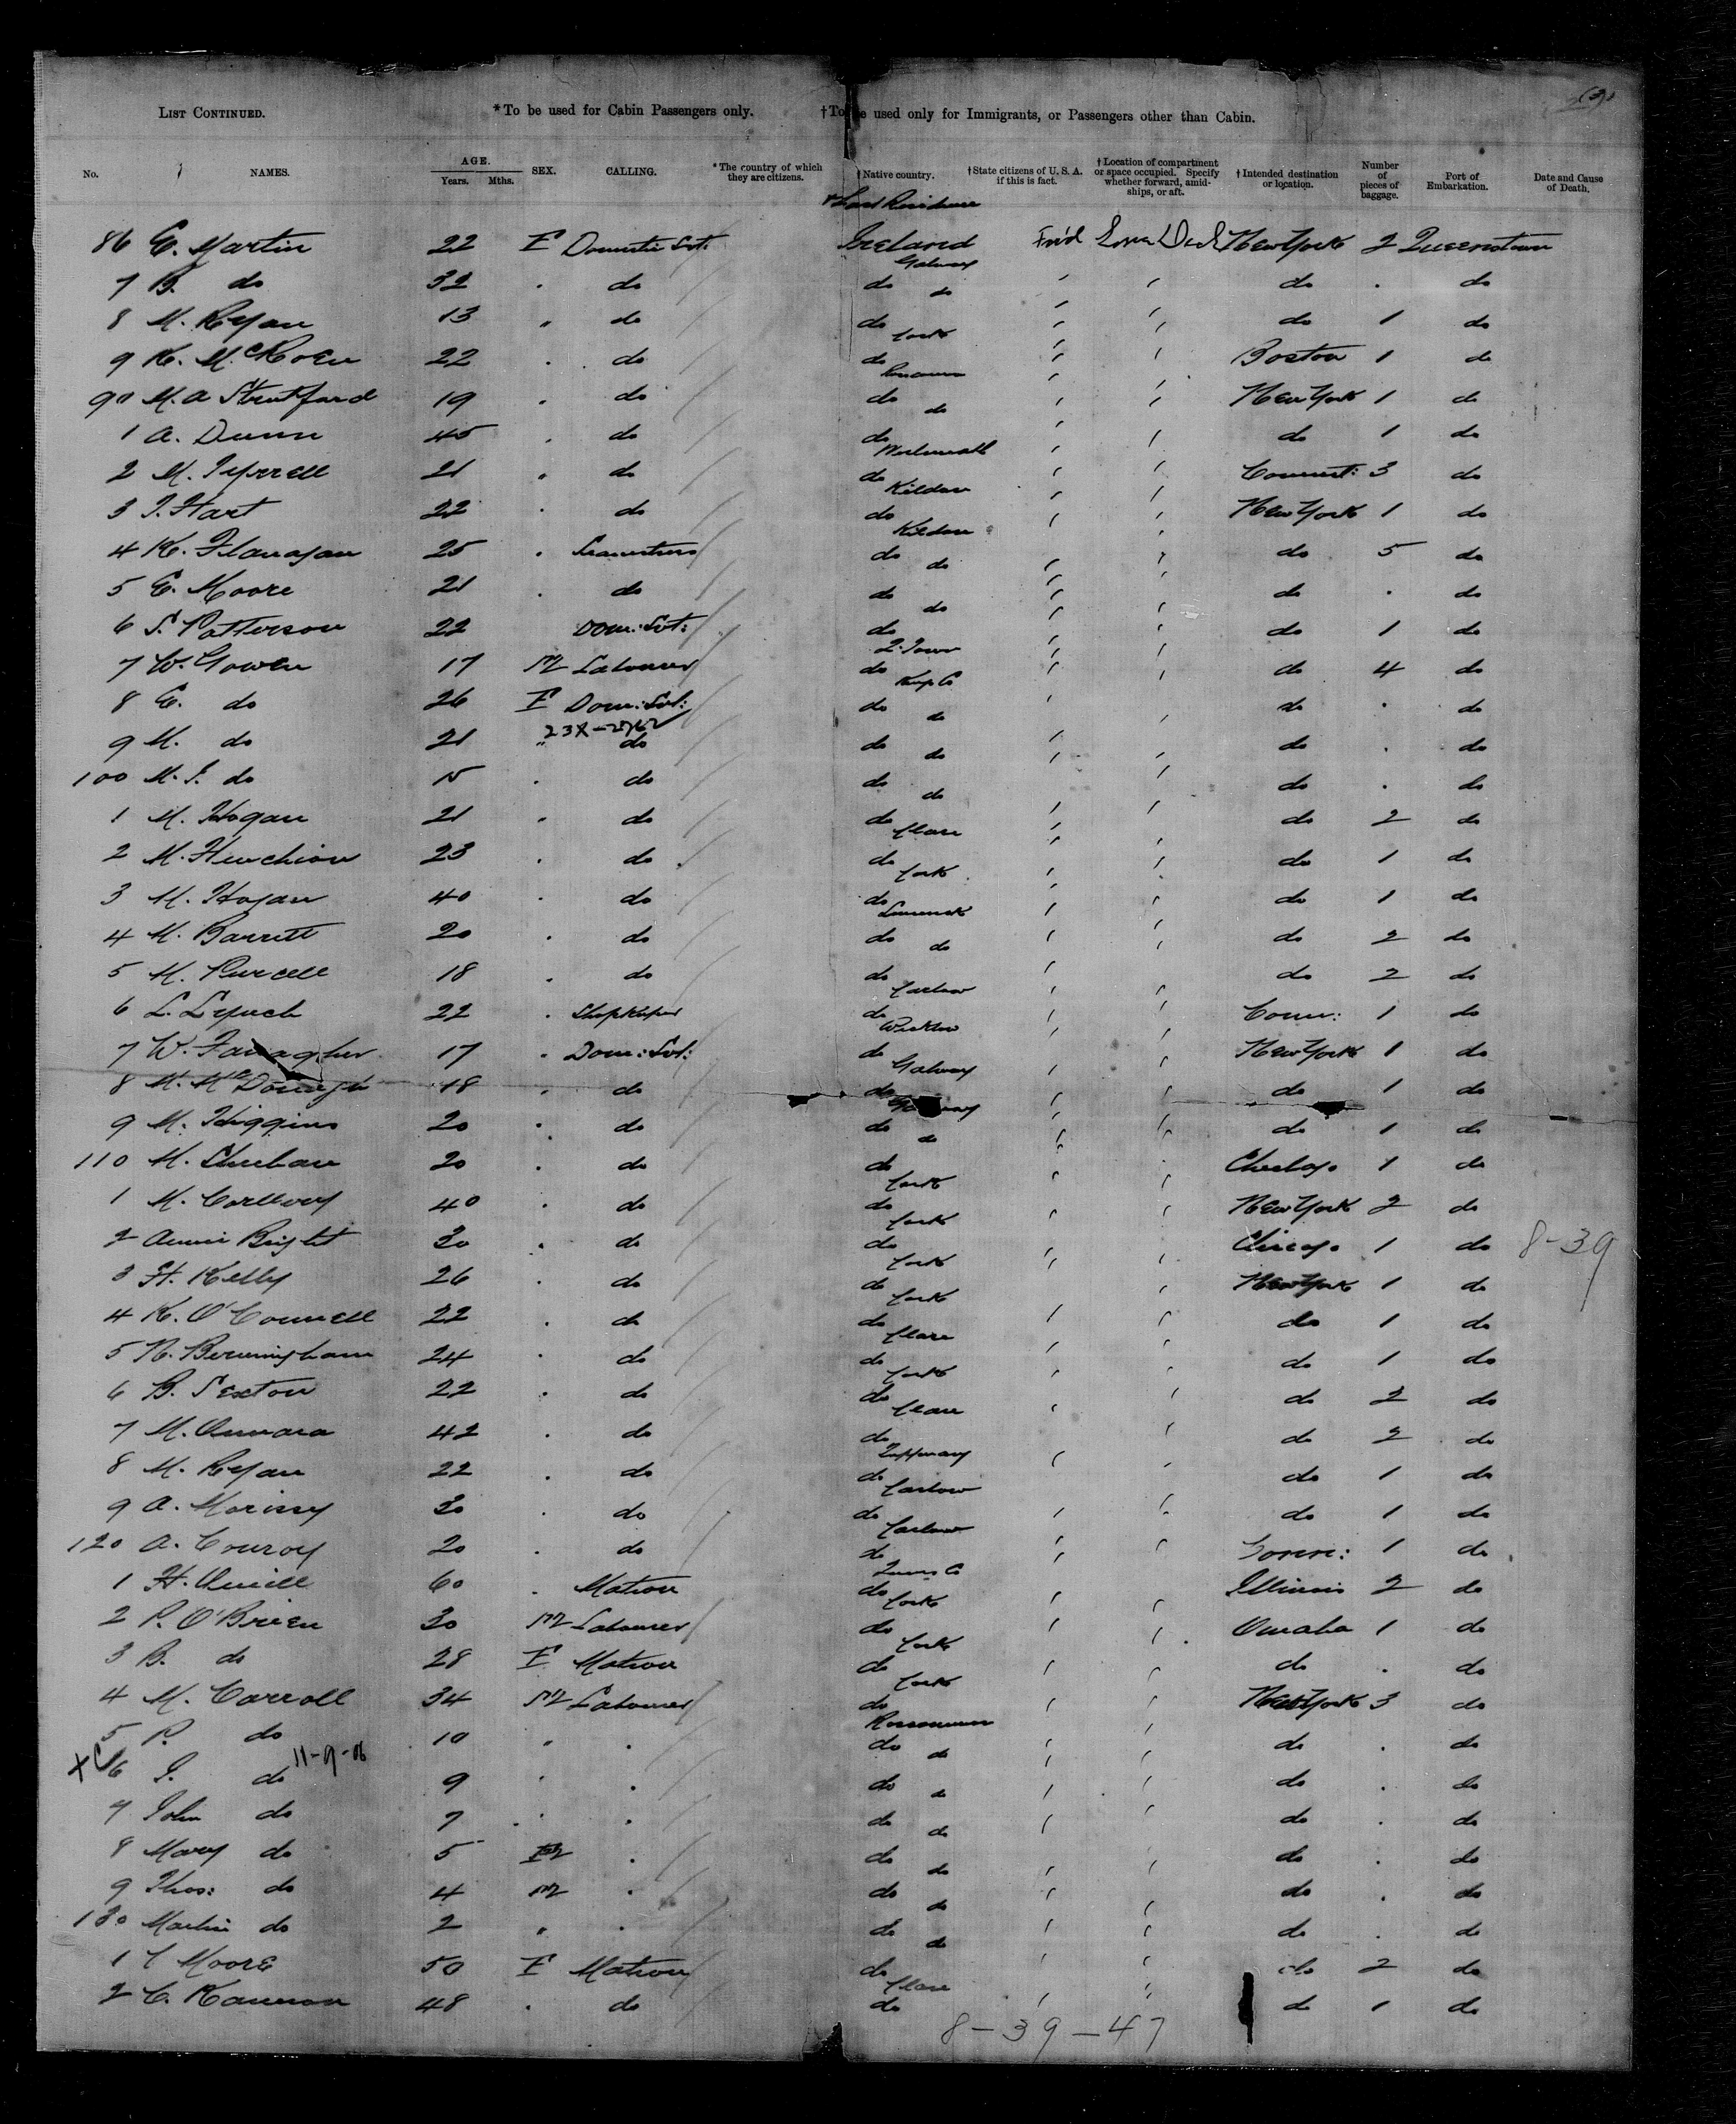 LIST CONTINUED. *To be used for Cabin Passengers only. †To be used only for Immigrants, or Passengers other than Cabin.
No. NAMES. AGE. Years. Mths. SEX. CALLING. *The country of which they are citizens. †Native country. †State citizens of U. S. A. if this is fact. †Location of compartment or space occupied. Specify whether forward, amidships, or aft. †Intended destination or location. Number of pieces of baggage. Port of Embarkation. Date and Cause of Death.
Last Residence
86 E. Martin 22 F Domestic Svt: Ireland Galway Fwd Deck New York 2 Queenstown
7 B. do 32 do do do do do
8 M. Ryan 13 " do do Cork do 1 do
9 K. 22 do do Boston 1 do
90 M. A 19 do do do New York 1 do
1 A. Dunn 45 do do do 1 do
2 M. Tyrrell 21 " do do Kildare Connect: 3 do
3 J. Hart 22 do do Kildare New York 1 do
4 K. Flanagan 25 do do do 5 do
5 E. Moore 21 do do do do do
6 S. Patterson 22 Dom: Svt: do do 1 do
7 W. Gowen 17 M Labourer do Kings Co do 4 do
8 E. do 26 F Dom: Svt: do do do do
23X-2762
9 M. do 21 " do do do do do
100 M. J. do 15 do do do do do
1 M. Hogan 21 " do do Clare do 2 do
2 M. 23 do do Cork do 1 do
3 M. Hogan 40 do do Limerick do 1 do
4 M. Barrett 20 do do do do 2 do
5 M. Purcell 18 do do Carlow do 2 do
6 L. Lynch 22 Shopkeeper do Wicklow Conn: 1 do
7 W. 17 Dom: Svt: do Galway New York 1 do
8 M. McDonagh 18 do do do 1 do
9 M. Higgins 20 do do do do 1 do
110 M. 20 do do Cork Chicago 1 do
1 M. 40 do do Cork New York 2 do
2 Annie Bright 30 do do Cork Chicago 1 do 8-39
3 H. Kelly 26 do do Cork New York 1 do
4 K. O'Connell 22 do do Clare do 1 do
5 N. Bermingham 24 do do Cork do 1 do
6 B. Sexton 22 do do Clare do 2 do
7 M. 42 do do Tipperary do 2 do
8 M. Ryan 22 do do Carlow do 1 do
9 A. Morissy 30 do do Carlow do 1 do
120 A. Conroy 20 do do Queens Co Conn: 1 do
1 H. 60 Matron do Cork Illinois 2 do
2 P. O'Brien 30 M Labourer do Cork Omaha 1 do
3 B. do 28 F Matron do Cork do do
4 M. Carroll 34 M Labourer do Roscommon New York 3 do
5 P. do 10 " do do do do
X C 6 J. do 11-9-06 9 do do do do
7 John do 7 do do do do
8 Mary do 5 do do do do
9 Thos: do 4 M do do do do
130 Martin do 2 " do do do do
1 Moore 50 F Matron do Clare do 2 do
2 C. Kannon 48 do do do 1 do
8-39-47